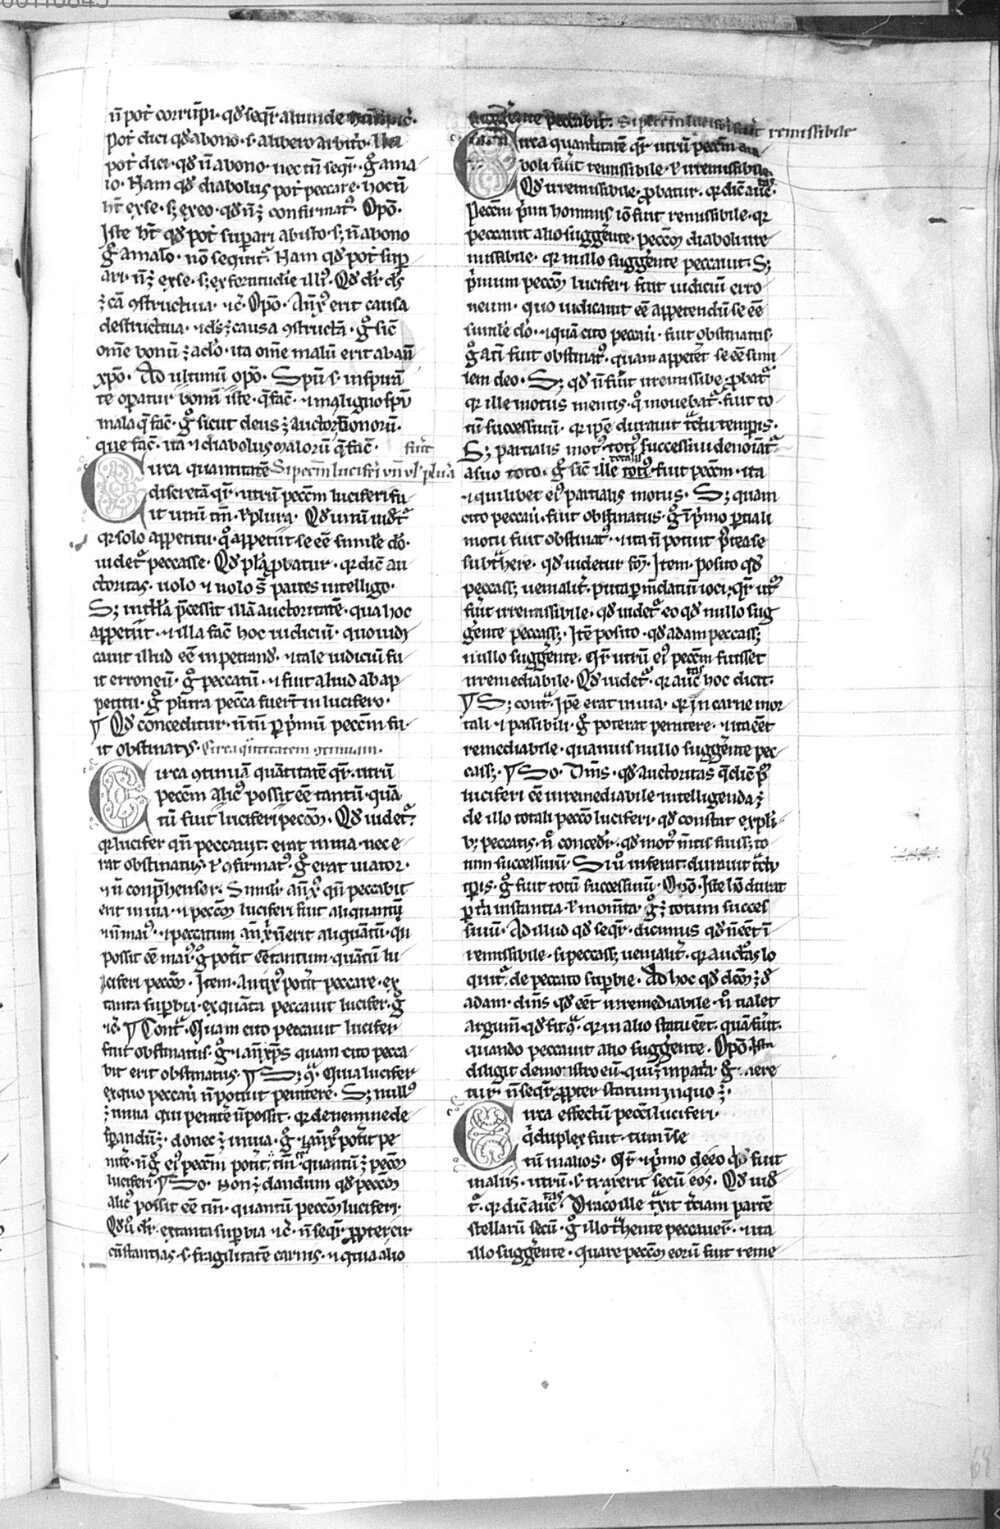 n̄ pot̄ corrūpi · qd̄ seqr̄ aliunde
pot̄ dici qd̄ a bono · s̄ a libero arbit̄o ·
pot̄ dici · qd̄ n̄ a bono · nec tn̄ seqr̄ · gͦ a ma
lo · Nam qd̄ diabolus pot̄ peccare · hoc n̄
ht̄ ex se · s; ex eo · qd̄ n̄ ꝫ confirmatꝰ · Opō ·
Iste ht̄ qd̄ pot̄ supari a bisto · s; n̄ a bono
gͦ a malo · non sequit̄ · Nam qd̄ pot̄ sup
ari · n̄ ꝫ ex se · s; ex fortitudīe illiꝰ · Qd̄ dr̄ · ds̄
ꝫ cā ↄstructiua · ⁊c̄ · Opō · Anx̄ erit causa
destructiua · ⁊ ds̄ ꝫ causa ↄstructā · gͦ sic̄
om̄e bonū ꝫ a clo · ita om̄e malū erit ab an̄
xp̄o · Ad ultimū opō · Spūs s̄ inspiran̄
te opatur bonū iste · q̄ fac̄ · ⁊ maligno spū
mala q̄ fac̄ · gͦ sicut deus ꝫ auctor bonorū ·
que fac̄ · ita ⁊ diabolus malorū q̄ fac̄ · fuit
Circa quantitatē Si pcc̄m luciferi vnū vl̓ plura
discretā qr̄ · utrū pecc̄m luciferi fu
it unū tm̄ · ł plura · Qd̄ unū uidet̄
qr solo appetitu · qͦ appetiit se eē simile dō ·
uidet̄ peccasse · Qd̄ pl̄a ꝓbatur · qr dicit au
ctoritas · uolo ⁊ nolo s̄ partes intelligo ·
S; intllā p̄cessit illā auctoritatē · qua hoc
appetiit · ⁊ illa fac̄ hoc iudiciū · quo iudi
cauit illud eē inpetiand̄ · ⁊ tale iudiciū fu
it erroneū · gͦ peccatū · ⁊ fuit aliud ab ap
petitu · gͦ plura pecc̄a fuer̄t in lucifero ·
¶ Qd̄ conceditur · n̄ tn̄ p p̄mū pecc̄m fu
it obstinatꝰ · Circa q̄ntitatem ↄtinuam ·
Circa ↄtinuā quātitatē qr̄ · utrū
pecc̄m alicꝰ possit eē tantū · quā
tū fuit luciferi pecc̄m · Qd̄ uidet̄
qr lucifer qn̄ peccauit · erat in uia · nec e
rat obstinatus · ł ↄfirmatꝰ · gͦ erat uiator ·
⁊ n̄ conp̄hensor · Simlr̄ anx̄ qn̄ peccabit
erit in uia · ⁊ pecc̄m luciferi fuit aliquantū
⁊ n̄ maiꝰ · ⁊ peccatum anx̄ n̄ erit aliquātū · qn̄
possit eē maiꝰ · gͦ pot̄it eē tantum · quantū lu
ciferi pecc̄m · Item · Antix̄ pot̄it peccare · ex
tanta supbia · ex quāta peccauit lucifer · gͦ
⁊c̄ · ¶ Cont̄ · Quam cito peccauit lucifer
fuit obstinatus · gͦ ⁊ anx̄ps quam cito pecca
bit erit obstinatus · ¶ S; qͣ · Quia lucifer
ex quo peccaū · n̄ potuit penitere · S; nullꝰ
ꝫ in uia qui penitē n̄ possit · qr de nemine de
spandū ꝫ · donec ꝫ in uia · gͦ ⁊ anx̄ pot̄it pe
nitē · n̄ gͦ eiꝰ pecc̄m pot̄it · tm̄ quantū ꝫ pecc̄m
luciferi · ¶ So · Non ꝫ dandum qd̄ pecc̄m
alicꝰ possit eē tm̄ · quantū pecc̄m luciferi ·
Qd̄ ū dr̄ · ex tanta supbia · ⁊c̄ · n̄ seqr̄ ꝓpter cir
cūstantias · s̄ fragilitatē carnis · ⁊ quia alio
sugḡente peccabit · Si pecc̄m luciferi fuit remissibile
Circa quantitatē qr̄ utrū pecc̄m dia
boli fuit remissibile · ł irremissibile ·
Qd̄ irremissibile · ꝓbatur · qr dic̄ auc̄tas ·
Pecc̄m p̄mi hominis iō fuit remissibile · qr
peccauit alio sugḡente · pecc̄m diaboli irre
missibile · qr nullo sugḡente peccauit · S;
p̄mum pecc̄m luciferi fuit iudiciū erro
neum · quo iudicauit eē appetendū se eē
simile dō · ⁊ quā cito peccaū · fuit obstinatus ·
gͦ ātī fuit obstinatꝰ · quam appeter̄t se eē simi
lem deo · S; qd̄ n̄ fuit irremissibile ꝓbat̄
qr ille motus mentis · qͦ mouebat̄ · fuit to
tū successiuū · qr ipē durauit t̄ctu temporis ·
S; partialis motꝰ totiꝰ successiui denoīat̄
a suo toto · gͦ sic̄ ille totꝰ totalis fuit pecc̄m · ita
⁊ quilibet eiꝰ partialis motus · S; quam
cito peccaū · fuit obstinatus · gͦ ī p̄mo partiali
motu fuit obstinatꝰ · ⁊ ita n̄ potuit p̄tea se
subt̄here · qd̄ uidetur fm̄ · Item · posito qd̄
peccass; uenialit̄ · puta p̄ mēdatiū iocī · qr̄ utrū
fuit irremissibile · qd̄ uidet̄ · eo qd̄ nullo sug
ḡente peccass; · Itē posito · qd̄ adam peccass;
nullo sugḡente · qr̄ utrū eiꝰ pecc̄m fuisset
irremediabile · Qd̄ uidet̄ · qr auc̄tas hoc dicit ·
¶ S; cont̄ · Ipē erat in uia · qr in carne mor
tali · ⁊ passibili · gͦ poterat penitere · ⁊ ita eēt
remediabile · quamuis nullo sugḡente pec
cass; · ¶ So · Dm̄s · qd̄ auctoritas q̄ dic̄ p̄c̄
luciferi eē irremediabile · intelligenda ꝫ
de illo totali pecc̄o luciferi · qd̄ constat ex plī
bꝫ peccatis · n̄ concedr̄ · qd̄ motꝰ mētis fuiss; to
tum successiuū · Si ū inferat · durauit t̄ctu
tp̄is · gͦ fuit totū successiuū · Opō · Iste hō durat
p ta instantia · ł momēta · gͦ ꝫ totum succes
siuū · Ad illud qd̄ seqr̄ · dicimus qd̄ n̄ eēt ī
remissibile · si peccass; uenialit̄ · qr auctas lo
quit̄ · de peccato supbie · Ad hoc qd̄ dc̄m ꝫ d̄
adam · dm̄s qd̄ eēt irremediabile · n̄ ualet
argum̄ · qd̄ fit qͣ · qr in alio statu eēt · quā fuit ·
quando peccauit alio sugḡente · Opō · Iste
diligit demonstro eū · qui ꝫ in pat̄a · gͦ mere
tur · n̄ seqr̄ ꝓpter statum in quo ꝫ ·
Circa effectum pecc̄i luciferi ·
q̄ duplex fuit · tum in se
tū in alios · Qr̄ · ⁊ p̄mo de eo qd̄ fuit
in aliis · utrū · s̄ traxerit secū eos · Qd̄ uid
t̄ · qr dic̄ auc̄tas · Draco ille t̄xit t̄ciam partē
stellarū secū · gͦ illo t̄hente peccauer̄t · ⁊ ita
illo sugḡente · quare pecc̄m eorū fuit reme